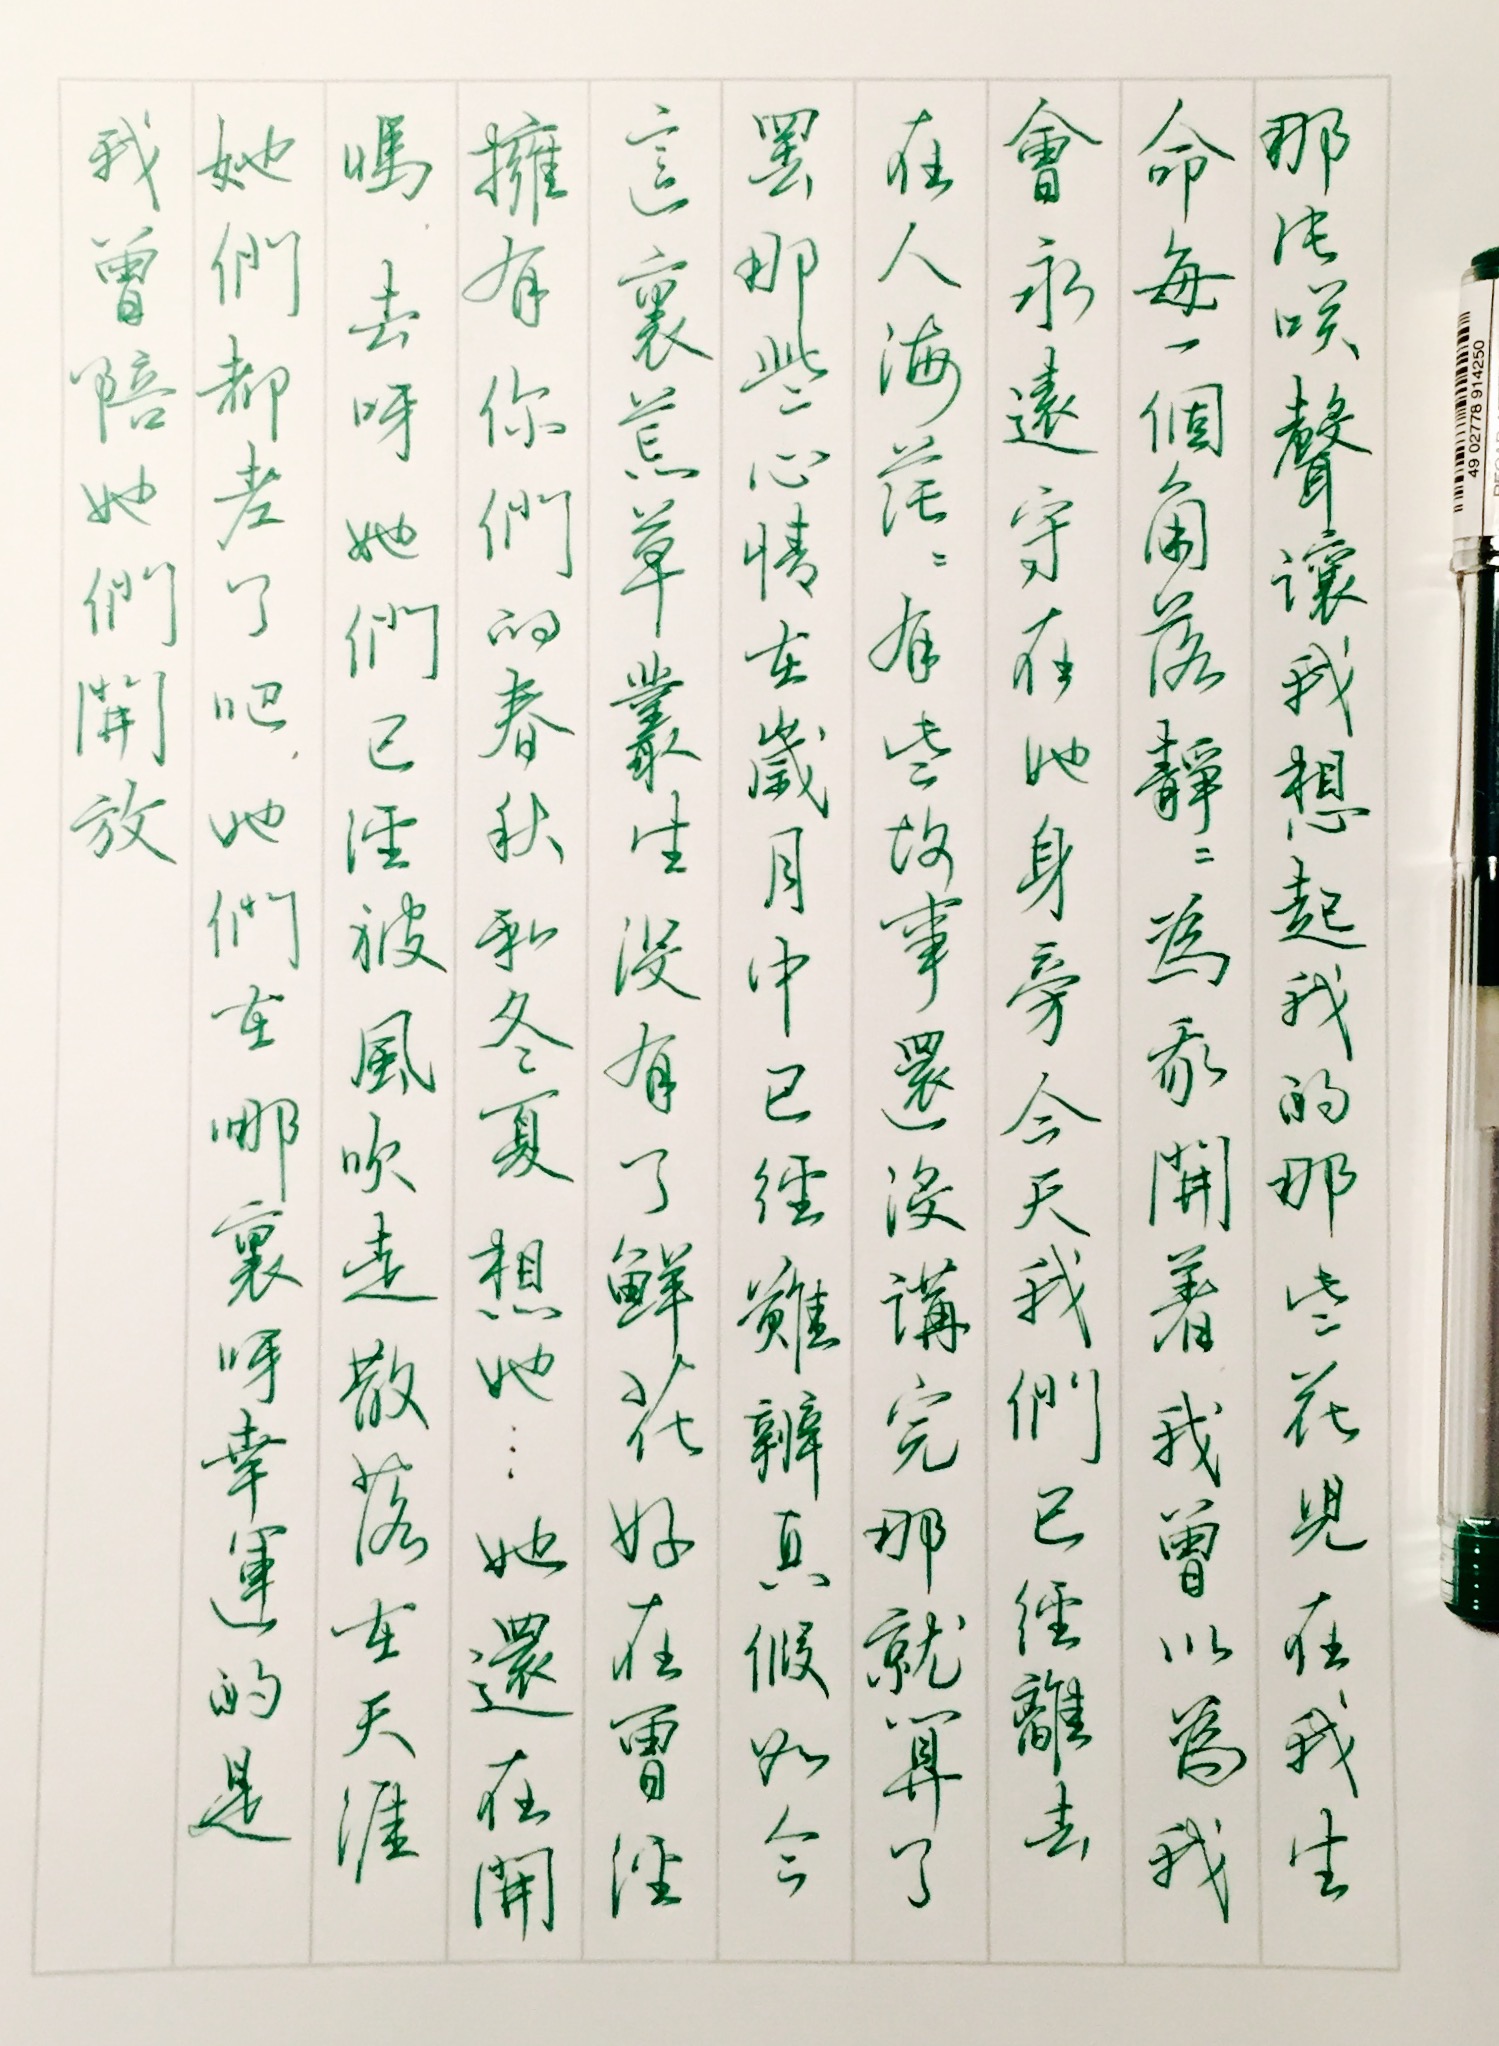 那片笑聲讓我想起我的那些花兒在我生
命每一個角落靜〻為我開着我曾以為我
會永遠守在她身旁今天我們已經離去
在人海茫〻有些故事還沒講完那就算了
罷那些心情在歲月中已經難辨真假如今
這裏荒草叢生沒有了鮮花好在曾經
擁有你們的春秋和冬夏想她…她還在開
嗎.去呀她們已經被風吹走散落在天涯
她們都老了吧.她們在哪裏呀幸運的是
我曾陪她們開放
49 02778 914250